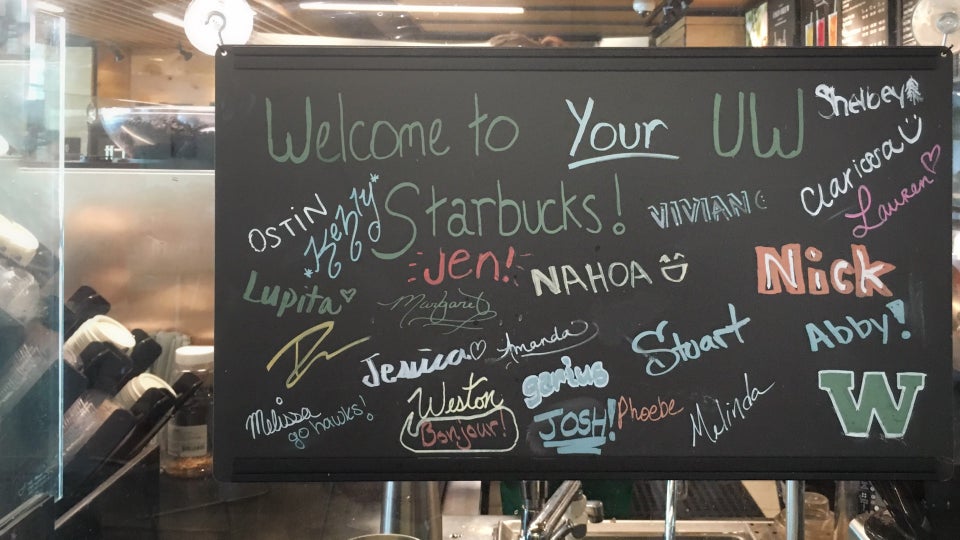 Welcome to Your UW
Starbucks!
Shelbey
OSTIN
Kelly
VIVIAN
Claricera
Lauren
Lupita
Jen!
Margaret
NAHOA
Nick
Jessica
Amanda
Stuart
Abby!
Melissa
go hawks!
Weston
Bonjour!
garius
JOSH!
Phoebe
Melinda
W